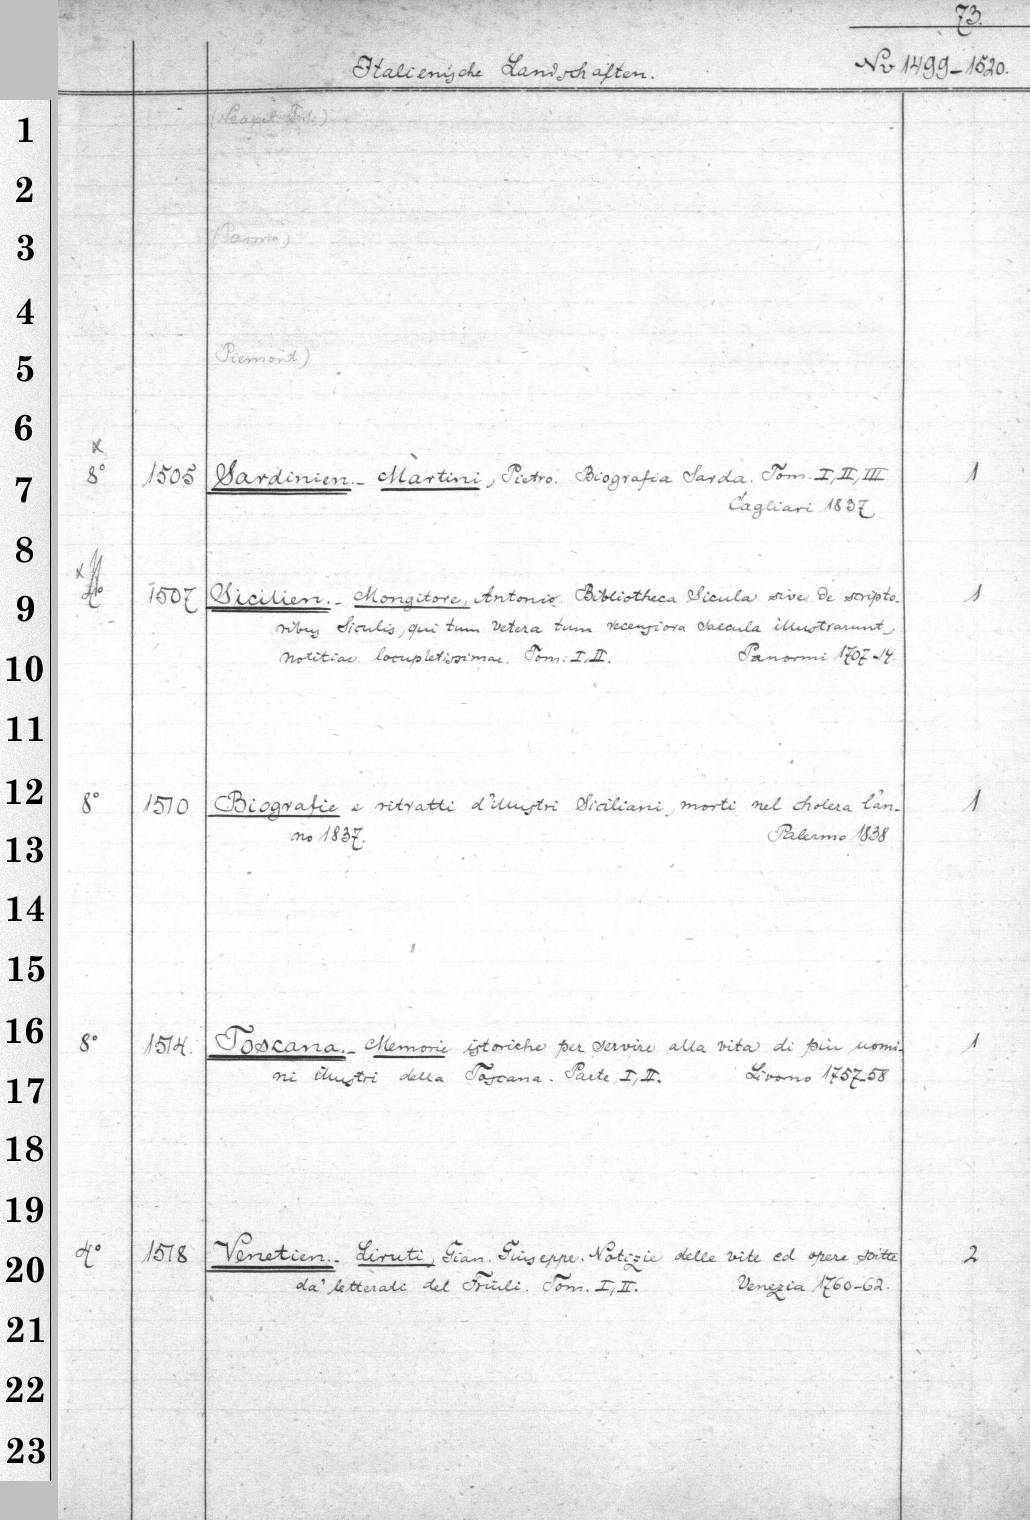 73.
Italienische Landschaften. No 1499-1520.
1
2
(Parma)
3
4
Piemont)
5
6
x
7 8° 1505 Sardinien. - Martini, Pietro. Biografia Sarda. Tom. I, II, III 1
Cagliari 1837
8
x
9 4° 1507 Sicilien. - Mongitore, Antonio. Bibliotheca Sicula sive de scripto- 1
ribus Siculis, qui tum vetera tum recensiora saecula illustrarunt,
10 notitiae locupletissimae. Tom. I, II. Panormi 1707-14
11
12 8° 1510 Biografie e ritratti d'illustri Siciliani, morti nel cholera l'an- 1
13 no 1837. Palermo 1838
14
15
16 8° 1514. Toscana. - Memorie istoriche per servire alla vita di più uomi- 1
17 ni illustri della Toscana. Parte I, II. Livorno 1757-58
18
19
20 4° 1518 Venetien. - Liruti, Gian. Giuseppe. Notizie delle vite ed opere scitte 2
da' letterati del Friuli. Tom. I, II. Venezia 1760-62.
21
22
23